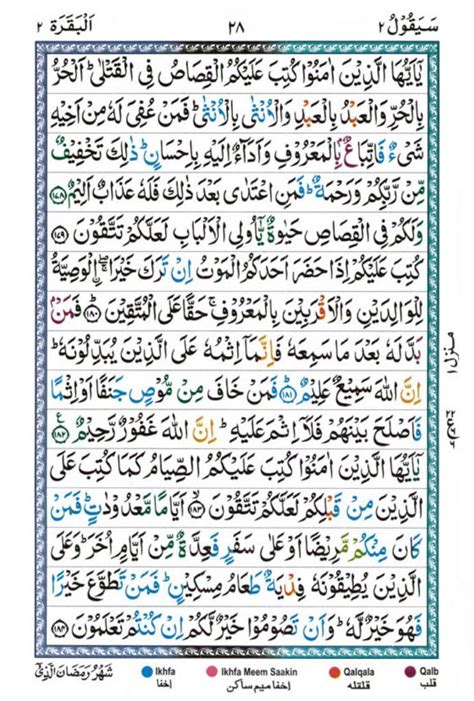 سَيَقُوْلُ ٢ ٢٨ اَلْبَقَرَة ٢
يٰٓاَيُّهَا الَّذِيْنَ اٰمَنُوْا كُتِبَ عَلَيْكُمُ الْقِصَاصُ فِى الْقَتْلٰىؕ اَلْحُرُّ
بِالْحُرِّ وَالْعَبْدُ بِالْعَبْدِ وَالْاُنْثٰى بِالْاُنْثٰىؕ فَمَنْ عُفِىَ لَهٗ مِنْ اَخِيْهِ
شَىْءٌ فَاتِّبَاعٌۢ بِالْمَعْرُوْفِ وَاَدَآءٌ اِلَيْهِ بِاِحْسَانٍؕ ذٰلِكَ تَخْفِيْفٌ
مِّنْ رَّبِّكُمْ وَرَحْمَةٌؕ فَمَنِ اعْتَدٰى بَعْدَ ذٰلِكَ فَلَهٗ عَذَابٌ اَلِيْمٌ ١٧٨
وَلَكُمْ فِى الْقِصَاصِ حَيٰوةٌ يّٰٓاُولِى الْاَلْبَابِ لَعَلَّكُمْ تَتَّقُوْنَ ١٧٩
كُتِبَ عَلَيْكُمْ اِذَا حَضَرَ اَحَدَكُمُ الْمَوْتُ اِنْ تَرَكَ خَيْرَا ۖۚ الْوَصِيَّةُ
لِلْوَالِدَيْنِ وَالْاَقْرَبِيْنَ بِالْمَعْرُوْفِۚ حَقًّا عَلَى الْمُتَّقِيْنَؕ ١٨٠ فَمَنْۢ
بَدَّلَهٗ بَعْدَ مَا سَمِعَهٗ فَاِنَّمَآ اِثْمُهٗ عَلَى الَّذِيْنَ يُبَدِّلُوْنَهٗؕ
اِنَّ اللّٰهَ سَمِيْعٌ عَلِيْمٌؕ ١٨١ فَمَنْ خَافَ مِنْ مُّوْصٍ جَنَفًا اَوْ اِثْمًا
فَاَصْلَحَ بَيْنَهُمْ فَلَآ اِثْمَ عَلَيْهِؕ اِنَّ اللّٰهَ غَفُوْرٌ رَّحِيْمٌ ١٨٢
يٰٓاَيُّهَا الَّذِيْنَ اٰمَنُوْا كُتِبَ عَلَيْكُمُ الصِّيَامُ كَمَا كُتِبَ عَلَى
الَّذِيْنَ مِنْ قَبْلِكُمْ لَعَلَّكُمْ تَتَّقُوْنَۙ ١٨٣ اَيَّامًا مَّعْدُوْدٰتٍؕ فَمَنْ
كَانَ مِنْكُمْ مَّرِيْضًا اَوْ عَلٰى سَفَرٍ فَعِدَّةٌ مِّنْ اَيَّامٍ اُخَرَؕ وَعَلَى
الَّذِيْنَ يُطِيْقُوْنَهٗ فِدْيَةٌ طَعَامُ مِسْكِيْنٍؕ فَمَنْ تَطَوَّعَ خَيْرًا
فَهُوَ خَيْرٌ لَّهٗؕ وَاَنْ تَصُوْمُوْا خَيْرٌ لَّكُمْ اِنْ كُنْتُمْ تَعْلَمُوْنَ ١٨٤
منزل ١
شَهْرُ رَمَضَانَ الَّذِىْٓ
Ikhfa اخفا
Ikhfa Meem Saakin اخفا میم ساکن
Qalqala قلقلہ
Qalb قلب